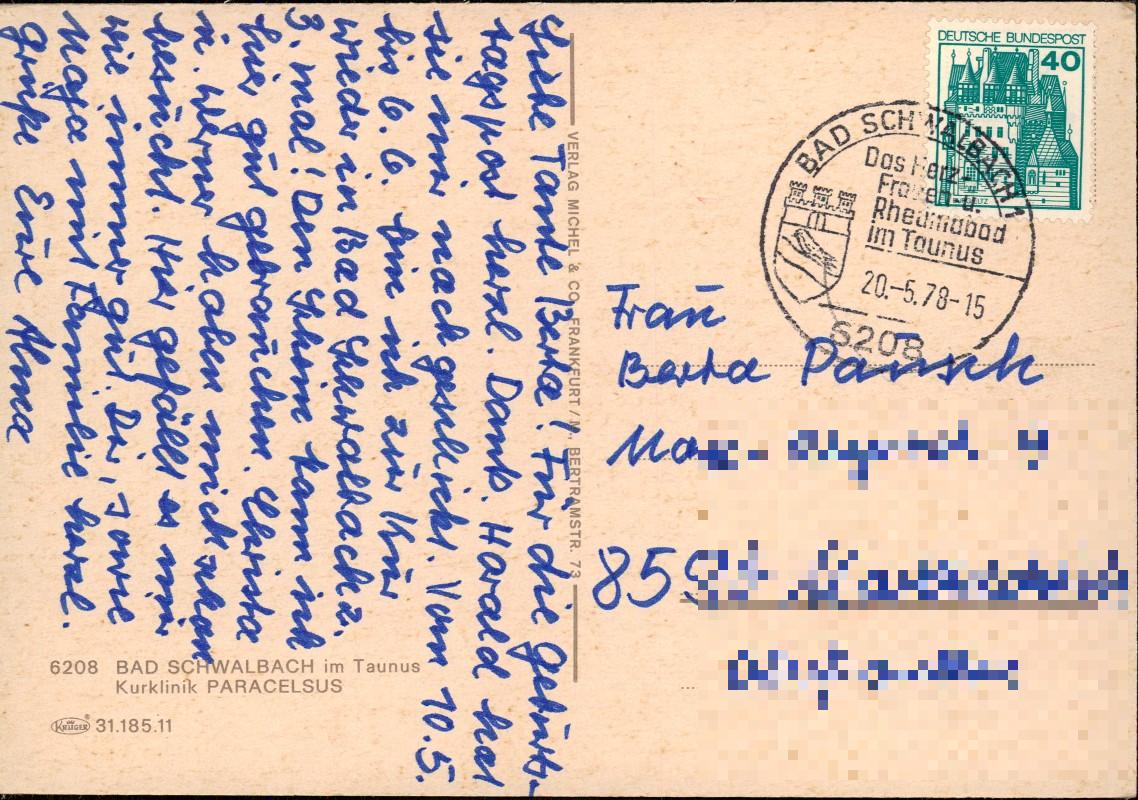 Liebe Tante Berta! Für die Geburts-
tagspost herzl. Dank. Harald hat
sie mir nachgeschickt. Vom 10.5.
bis 6.6. bin ich zur Kur
wieder in Bad Schwalbach z.
3. mal! Den Schein kann ich
hier gut gebrauchen. Christa
u. Werner haben mich schon
besucht. Hier gefällt es mir
wie immer gut. Dir, sowie
Maga mit Familie herzl.
Grüße Eure Alma
VERLAG MICHEL & CO., FRANKFURT/M., BERTRAMSTR. 73
6208 BAD SCHWALBACH im Taunus
Kurklinik PARACELSUS
KRÜGER 31.185.11
DEUTSCHE BUNDESPOST
40
BAD SCHWALBACH 1
Das Herz-
Frauen- u.
Rheumabad
im Taunus
20.-5.78-15
6208
Frau
Berta Pausch
85